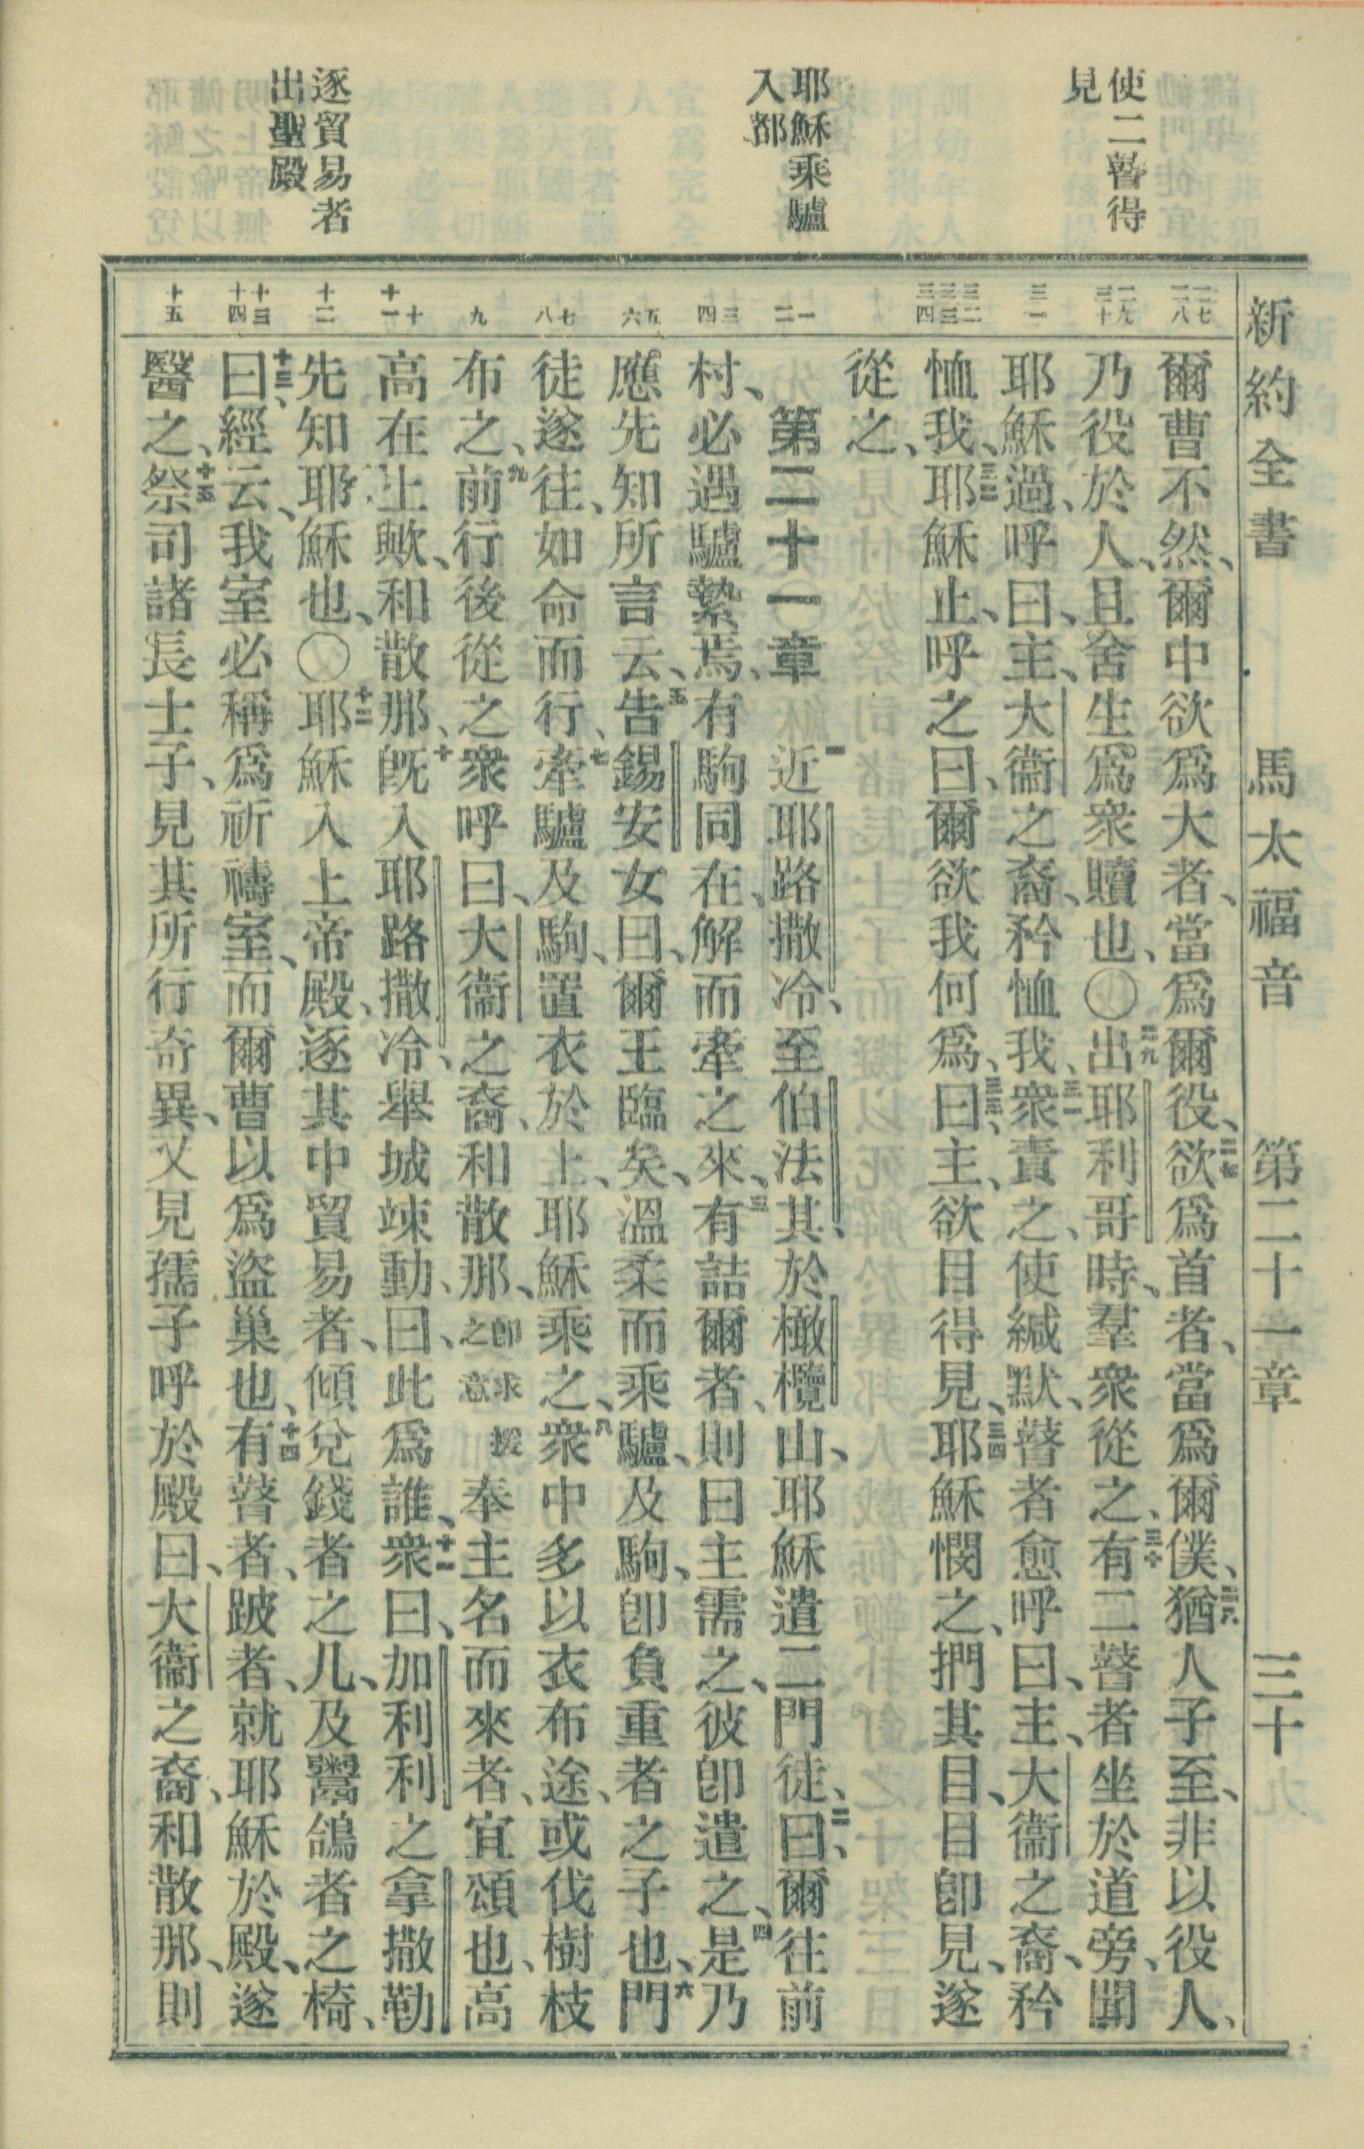 新約全書　馬太福音　第二十一章　三十
使二瞽得
見
耶穌乘驢
入都
逐貿易者
出聖殿
二七 二八
二九 三十
三一
三二 三三 三四
一 二
三 四
五 六
七 八
九
十 十一
十二
十三 十四
十五
爾曹不然、爾中欲爲大者、當爲爾役、二七欲爲首者、當爲爾僕、二八猶人子至、非以役人、
乃役於人、且舍生爲衆贖也、〇二九出耶利哥時、羣衆從之、三十有二瞽者坐於道旁、聞
耶穌過、呼曰、主、大衞之裔、矜恤我、三一衆責之、使緘默、瞽者愈呼曰、主、大衞之裔、矜
恤我、三二耶穌止、呼之曰、爾欲我何爲、三三曰、主、欲目得見、三四耶穌憫之、捫其目、目卽見、遂
從之、
第二十一章　一近耶路撒冷、至伯法其、於橄欖山、耶穌遣二門徒、二曰、爾往前
村、必遇驢縶焉、有駒同在、解而牽之來、三有詰爾者、則曰主需之、彼卽遣之、四是乃
應先知所言云、五告錫安女曰、爾王臨矣、溫柔而乘驢、及駒、卽負重者之子也、六門
徒遂往、如命而行、七牽驢及駒、置衣於上、耶穌乘之、八衆中多以衣布途、或伐樹枝
布之、九前行後從之衆呼曰、大衞之裔、和散那、卽求援之意奉主名而來者、宜頌也、高
高在上歟、和散那、十旣入耶路撒冷、舉城竦動、曰、此爲誰、十一衆曰、加利利之拿撒勒
先知耶穌也、〇十二耶穌入上帝殿、逐其中貿易者、傾兌錢者之几、及鬻鴿者之椅、
十三曰、經云、我室必稱爲祈禱室、而爾曹以爲盜巢也、十四有瞽者、跛者、就耶穌於殿、遂
醫之、十五祭司諸長士子、見其所行奇異、又見孺子呼於殿曰、大衞之裔、和散那、則